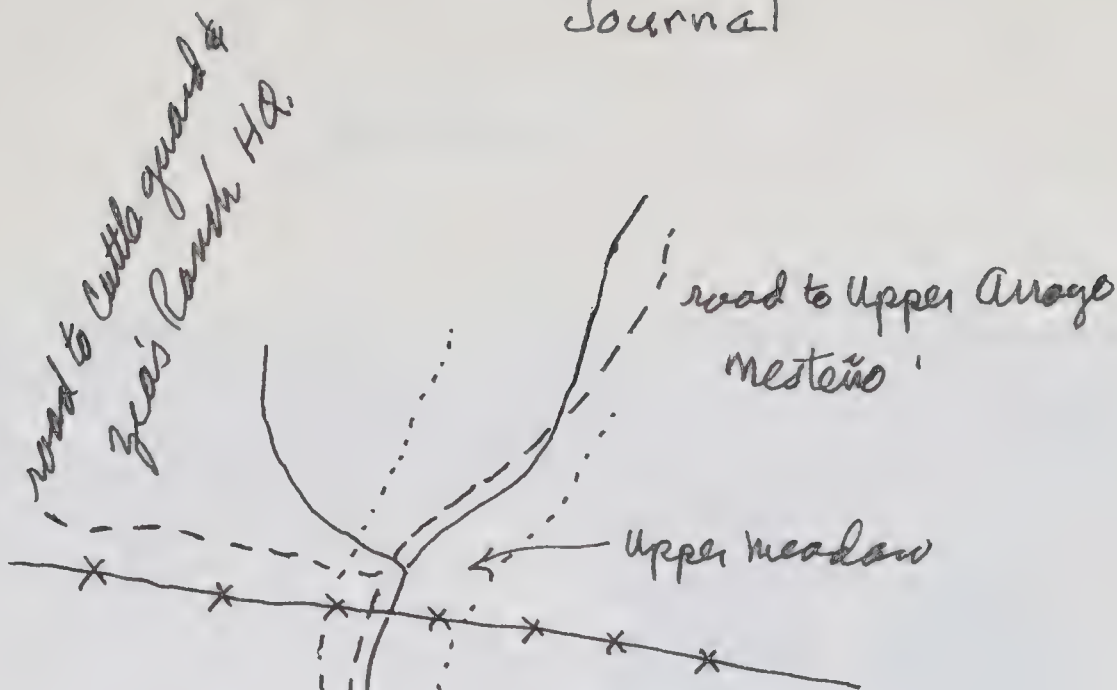 Journal
road to Cattle guard &
Ranch HQ.
road to Upper Arroyo
Mesteño
Upper meadow